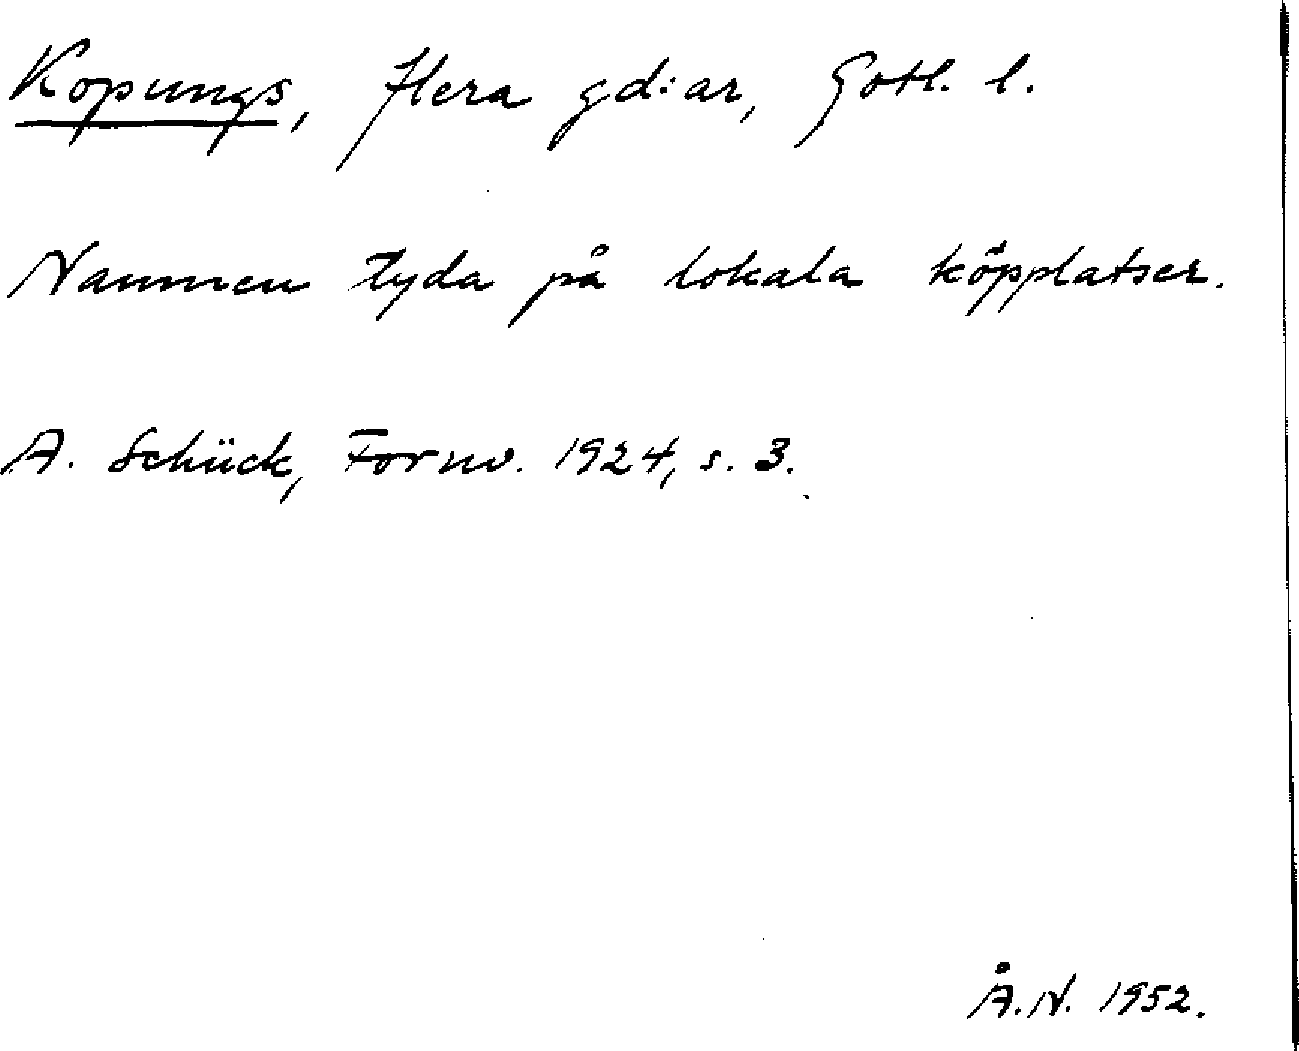 Kopungs, flera gd:ar, Gotl. l.
Namnen tyda på lokala köpplatser.
A. Schück, Fornv. 1924, s. 3.
Å.N. 1952.